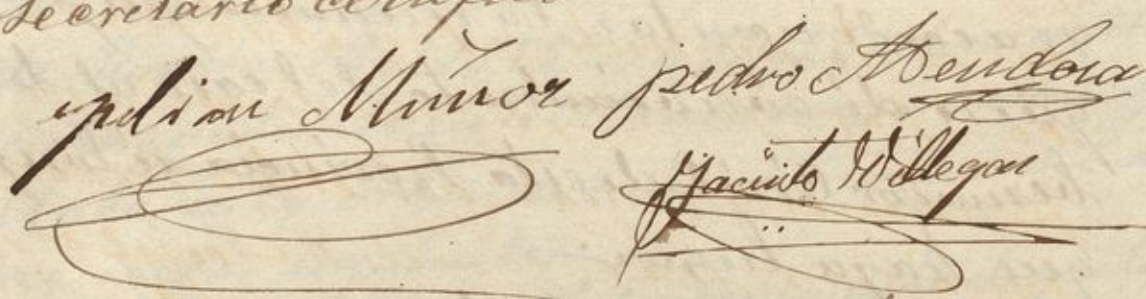 Secretario certifico
Julian Muñoz pedro Mendoza
Jacinto Villegas